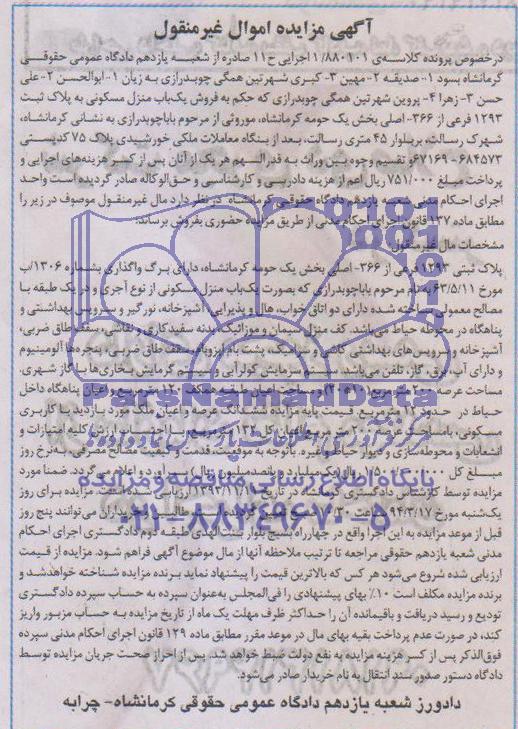 آگهی مزایده اموال غیرمنقول
درخصوص پرونده کلاسه‌ی ۱/۸۸۰۱۰۱ اجرایی ح۱۱ صادره از شعبه یازدهم دادگاه عمومی حقوقی
کرمانشاه بسود ۱- صدیقه ۲- مهین ۳- کبری شهرتین همگی چوبدرازی به زیان ۱- ابوالحسن ۲- علی
حسن ۳- زهرا ۴- پروین شهرتین همگی چوبدرازی که حکم به فروش یک‌باب منزل مسکونی به پلاک ثبت
۱۲۹۳ فرعی از ۳۶۶- اصلی بخش یک حومه کرمانشاه، موروثی از مرحوم باباچوبدرازی به نشانی کرمانشاه،
شهرک رسالت، بریلوار ۴۵ متری رسالت، بعد از بنگاه معاملات ملکی خورشیدی پلاک ۷۵ کدپستی
۶۸۴۵۷۳-۶۷۱۶۹ و تقسیم وجوه بین وراث به قدرالسهم هر یک از آنان پس از کسر هزینه‌های اجرایی و
پرداخت مبلغ ۷۵۱/۰۰۰ ریال اعم از هزینه دادرسی و کارشناسی و حق‌الوکاله صادر گردیده است واحد
اجرای احکام مدنی شعبه یازدهم دادگاه حقوقی کرمانشاه در نظر دارد مال غیرمنقول موصوف در زیر را
مطابق ماده ۱۳۷ قانون اجرای احکام مدنی از طریق مزایده حضوری بفروش برساند.
مشخصات مال غیرمنقول:
پلاک ثبتی ۱۲۹۳ فرعی از ۳۶۶- اصلی بخش یک حومه کرمانشاه، دارای برگ واگذاری بشماره ۱۳۰۶/ب
مورخ ۶۳/۵/۱۱ به نام مرحوم باباچوبدرازی که بصورت یک‌باب منزل مسکونی از نوع آجری و در یک طبقه با
مصالح معمولی ساخته شده دارای دو اتاق خواب، هال و پذیرایی، آشپزخانه، نورگیر و سرویس بهداشتی و
پناهگاه در محوطه حیاط می‌باشد. کف منزل سیمان و موزائیک، بدنه سفیدکاری و نقاشی، سقف طاق ضربی،
آشپزخانه و سرویس‌های بهداشتی کاشی و سرامیک، پشت بام ایزوگام، سقف طاق ضربی، پنجره‌ها آلومینیوم
و دارای آب، برق، گاز، تلفن می‌باشد. سیستم سرمایش کولر آبی و سیستم گرمایش بخاری‌ها با گاز شهری.
مساحت عرصه ۲۰۰ متر مربع (۲۰*۱۰) و مساحت اعیان طبقه همکف ۱۲۰ متر مربع و اعیان پناهگاه داخل
حیاط در حدود ۱۲ مترمربع. قیمت پایه مزایده ششدانگ عرصه و اعیان ملک مورد بازدید با کاربری
مسکونی، بمساحت عرصه ۲۰۰ متر مربع و اعیان کل ۱۳۲ متر مربع با احتساب ارزش کلیه امتیازات و
انشعابات و محوطه‌سازی و دیوار حیاط و غیره. باتوجه به موقعیت، قدمت و کیفیت مصالح مصرفی، به‌نرخ روز
مبلغ کل ۱/۵۰۰/۰۰۰/۰۰۰ ریال (یک‌میلیارد و پانصدمیلیون ریال) برآورد و اعلام می‌گردد. ضمنا مورد
مزایده توسط کارشناس دادگستری کرمانشاه در تاریخ ۱۳۹۳/۱۱/۱۹ ارزیابی شده است. مزایده برای روز
یک‌شنبه مورخ ۹۴/۳/۱۷ ساعت ۱۰/۳۰ خریداران می‌توانند پنج روز
قبل از موعد مزایده به این اجرا واقع در چهارراه بسیج بلوار بنت‌الهدی طبقه دوم دادگستری اجرای احکام
مدنی شعبه یازدهم حقوقی مراجعه تا ترتیب ملاحظه آنها از مال موضوع آگهی فراهم شود. مزایده از قیمت
ارزیابی شده شروع می‌شود هر کس که بالاترین قیمت را پیشنهاد نماید برنده مزایده شناخته خواهدشد و
برنده مزایده مکلف است ۱۰٪ بهای پیشنهادی را فی‌المجلس به‌عنوان سپرده به حساب سپرده دادگستری
تودیع و رسید دریافت و باقیمانده آن را حداکثر ظرف مهلت یک ماه از تاریخ مزایده به حساب مزبور واریز
کند، در صورت عدم پرداخت بقیه بهای مال در موعد مقرر مطابق ماده ۱۲۹ قانون اجرای احکام مدنی سپرده
فوق‌الذکر پس از کسر هزینه مزایده به نفع دولت ضبط خواهد شد. پس از احراز صحت جریان مزایده توسط
دادگاه دستور صدور سند انتقال به نام خریدار صادر می‌شود.
دادورز شعبه یازدهم دادگاه عمومی حقوقی کرمانشاه- چرابه
ParsNamadData
مرکز فرآوری اطلاعات پارس نماد داده‌ها
پایگاه اطلاع رسانی مناقصه و مزایده
۰۲۱-۸۸۳۴۹۶۷۰-۵